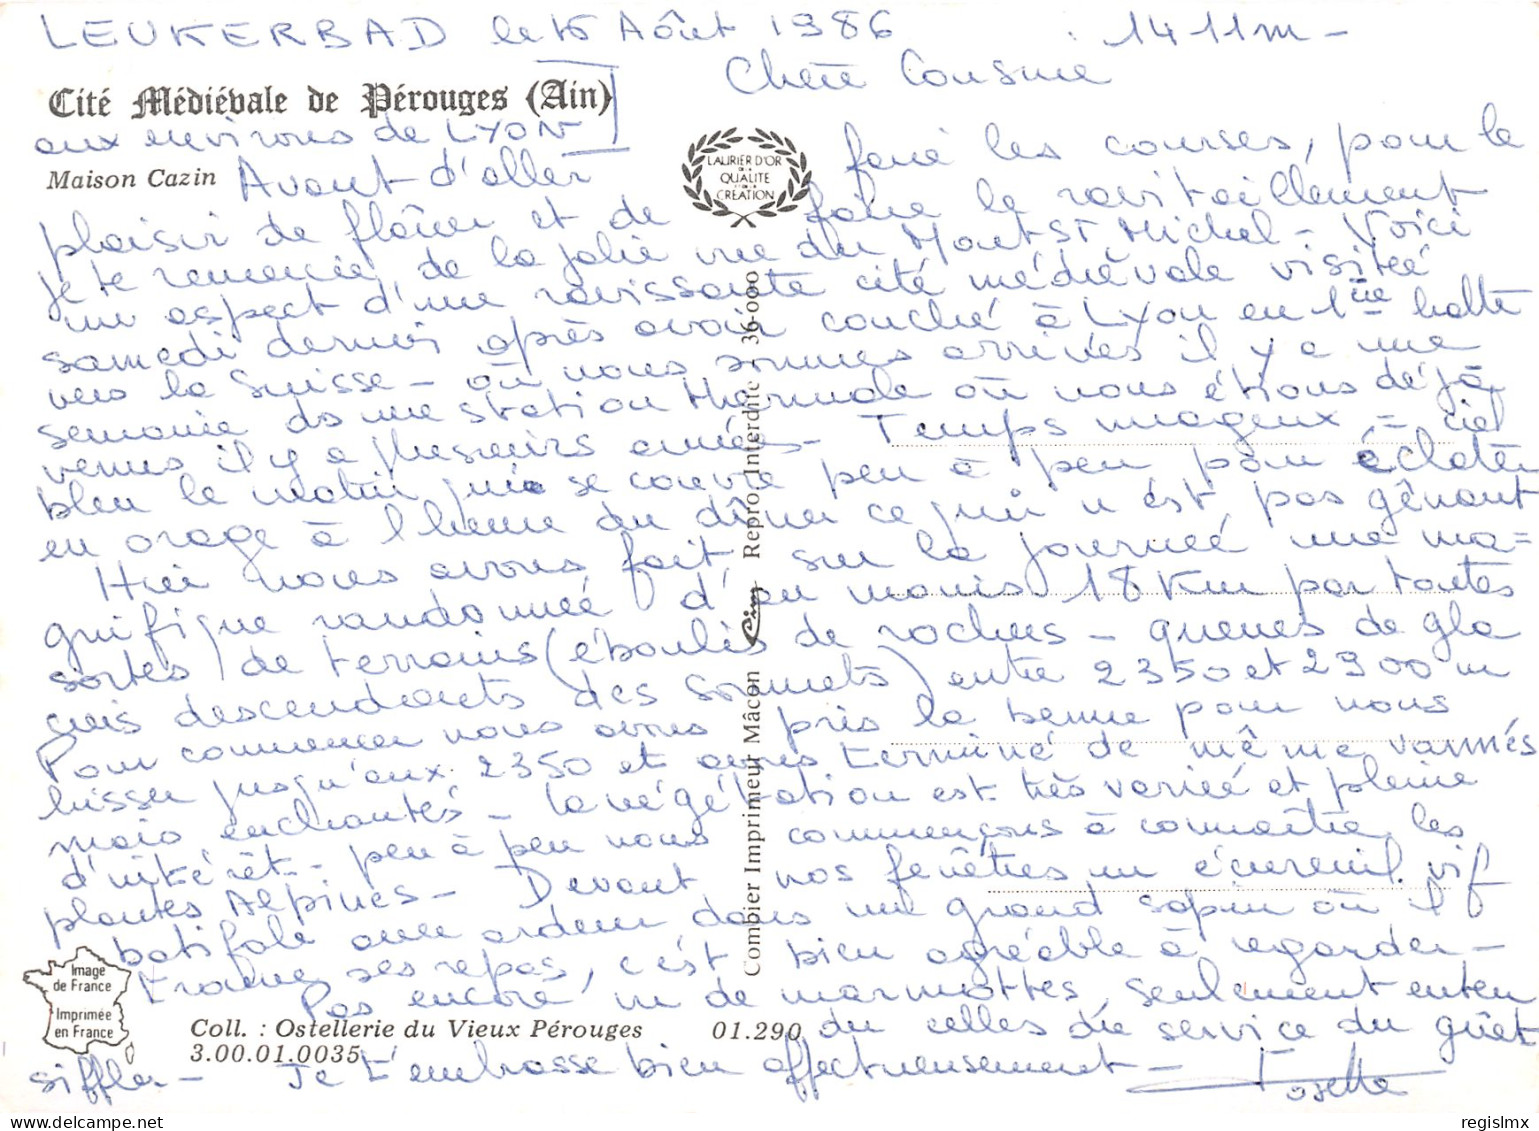 LEUKERBAD le 16 Août 1986 : 1411m -
Chère Cousine
Cité Médiévale de Pérouges (Ain)
aux environs de LYON
Maison Cazin
LAURIER D'OR
DE LA
QUALITE
ET DE LA
CREATION
Avant d'aller faire les courses, pour le
plaisir de flâner et de faire le ravitaillement
je te remercie de la jolie vue du Mont St Michel - Voici
un aspect d'une ravissante cité médiévale visitée
samedi dernier après avoir couché à Lyon en 1ère halte
vers la Suisse - où nous sommes arrivés il y a une
semaine ds une station thermale où nous étions déjà
venus il y a plusieurs années - Temps orageux, = ciel
bleu le matin qui se couvre peu à peu pour éclater
en orage à l'heure du dîner ce qui n'est pas gênant
Hier nous avons fait, sur la journée une ma=
gnifique randonnée d'au moins 18 Km par toutes
sortes de terrains (éboulis de rochers - queues de gla
ciers descendants des sommets) entre 2350 et 2900 m
Pour commencer nous avons pris la benne pour nous
hisser jusqu'aux 2350 et avons terminé de même vannés
mais enchantés - la végétation est très variée et pleine
d'intérêt - peu à peu nous commençons à connaître les
plantes Alpines - Devant nos fenêtres un écureuil vif
batifole avec ardeur dans un grand sapin où il
trouve ses repas, c'est bien agréable à regarder -
Pas encore vu de marmottes, seulement enten
du celles de service du guet
siffler - Je t'embrasse bien affectueusement -
Josette
Combier Imprimeur Mâcon Cim Repro. Interdite - 36-000
Image
de France
Imprimée
en France
Coll. : Ostellerie du Vieux Pérouges 01.290
3.00.01.0035
regislmx